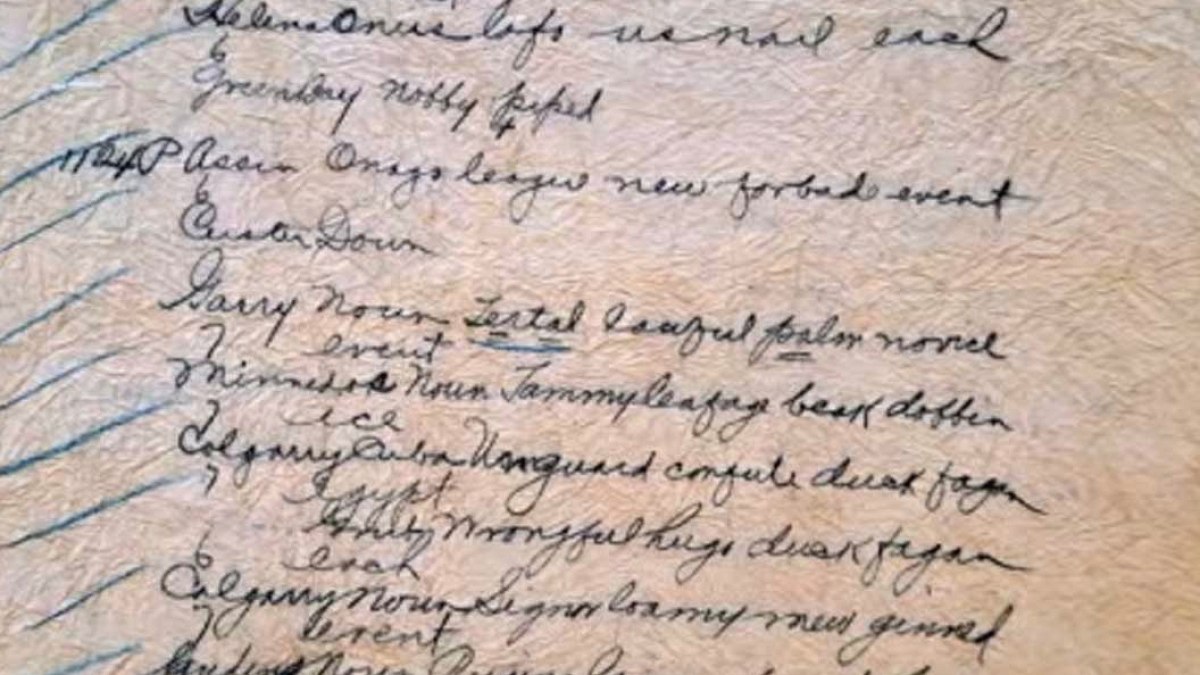 Helena Onus lofo usnail each
6
Greenbay nobby peped
1124P Assin Onago league new forbade event
6
Custer Down
Garry Noun Tertal lawful palm novice
7 event
Minnedos Noun Jammyleafage beak dobbin
7 ace
Calgarry Cuba Unguard confute duck fagan
7 Egypt
Wrongful hugo duck fagan
6 each
Calgarry Noun Signor loamy mew ginned
7 event
Noun